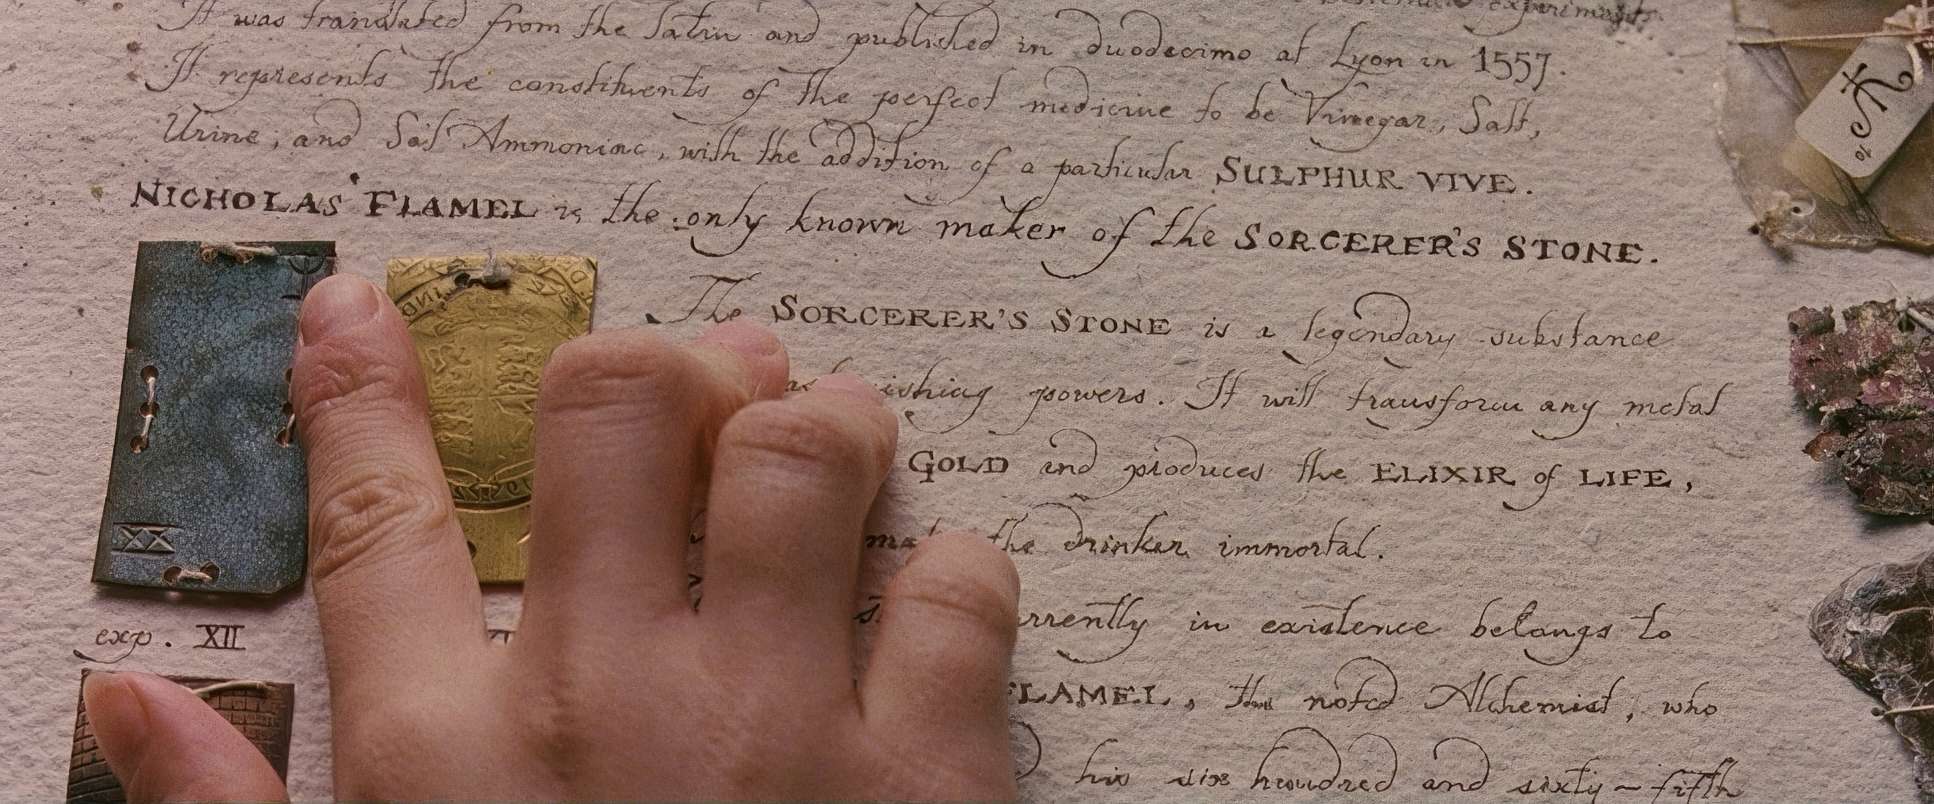 It was translated from the Latin and published in duodecimo at Lyon in 1557.
It represents the constituents of the perfect medicine to be Vinegar, Salt,
Urine, and Sal Ammoniac, with the addition of a particular SULPHUR VIVE.
NICHOLAS FLAMEL is the only known maker of the SORCERER'S STONE.
The SORCERER'S STONE is a legendary substance
powers. It will transform any metal
GOLD and produces the ELIXIR of LIFE,
the drinker immortal.
in existence belongs to
FLAMEL, the noted Alchemist, who
his six hundred and sixty-fifth
XX
exp. XII